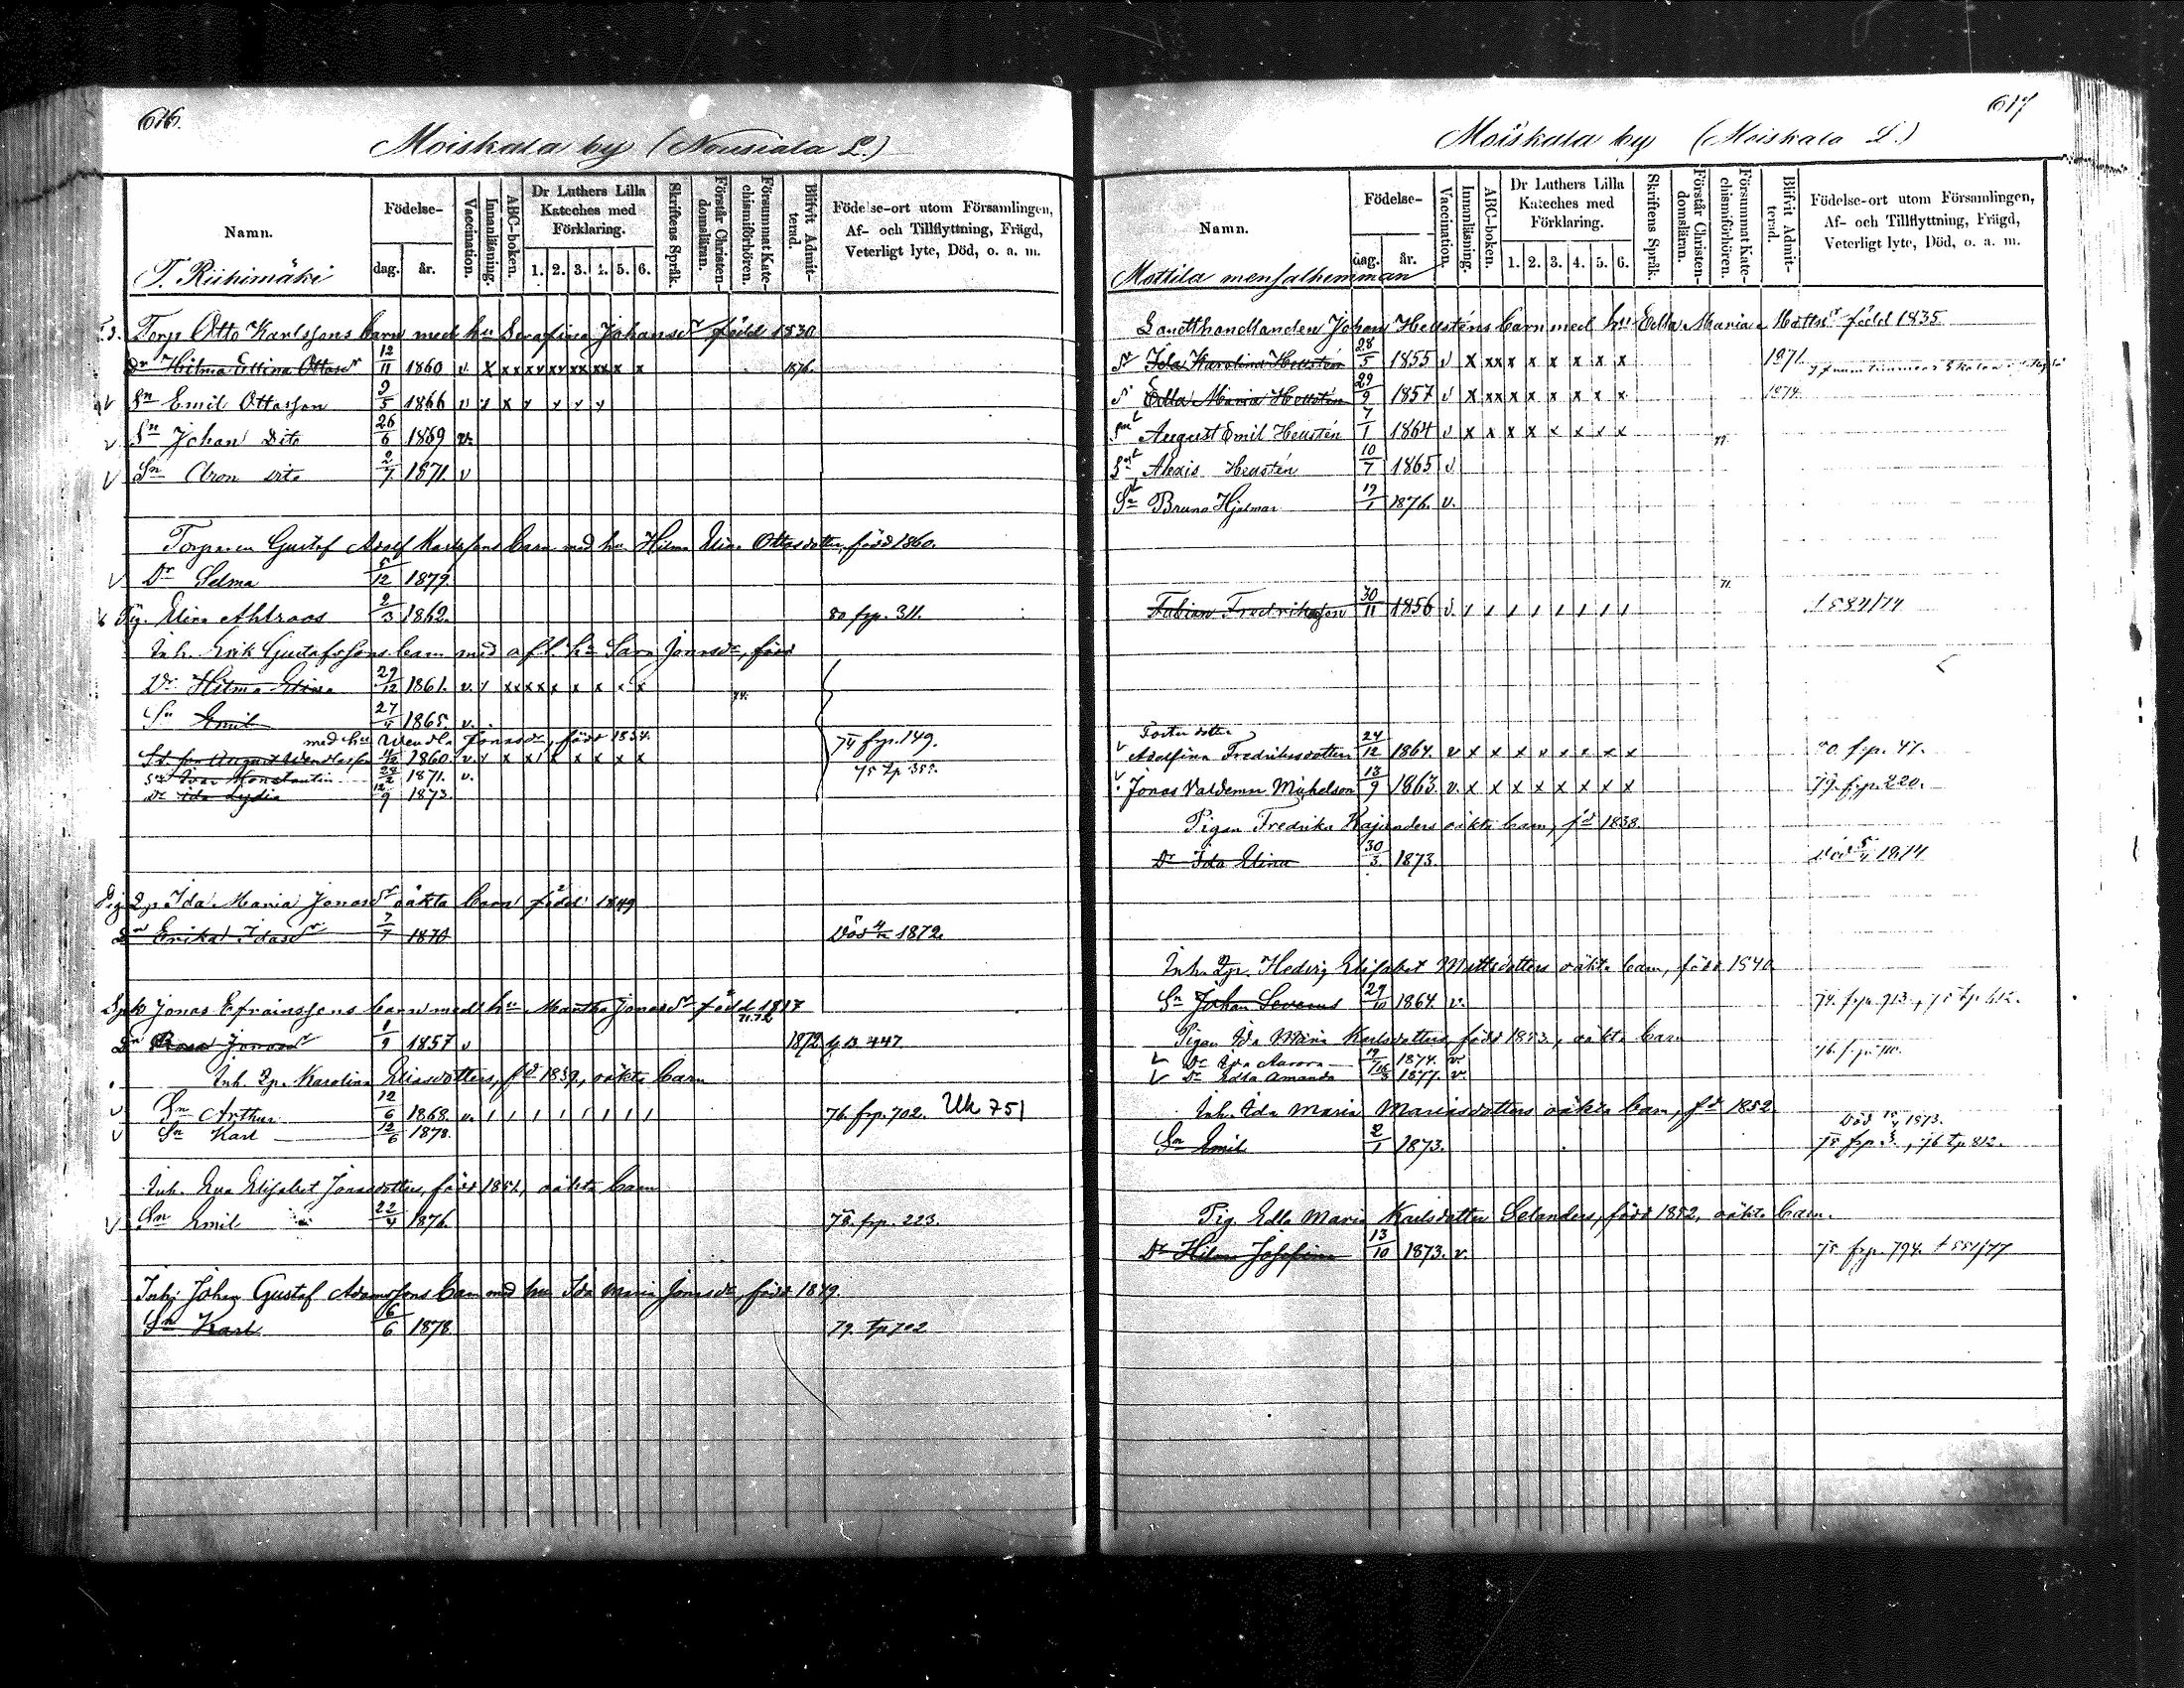 616.
Moiskala by (Nousiala L.)
Namn.
Födelse-
dag.
år.
Vaccination.
Innanläsning.
ABC-boken.
Dr Luthers Lilla Kateches med Förklaring.
1. 2. 3. 4. 5. 6.
Skriftens Språk.
Förstår Christen-domsläran.
Försummat Kate-chismiförhören.
Blifvit Admit-terad.
Födelse-ort utom Församlingen,
Af- och Tillflyttning, Frägd,
Veterligt lyte, Död, o. a. m.
T. Riihimäki
Torp Otto Karlssons barn med hu Serafina Johansdr född 1830
Dr Hilma Ottosdr 12/11 1860 v. x xx 1876.
v Sn Emil Ottosson 9/5 1866 v
v Sn Johan Dito 26/6 1869 v.
v Sn Aron dito 2/7 1871. v
Torparen Gustaf Adolf Karlssons barn med hu Hilma Ottosdotter, född 1860.
v Dr Selma 5/12 1879.
Pig. Elina Ahlroos 2/3 1862. 80 frp. 311.
Inh. Erik Gustafssons barn med afl. hu Sara Jonasdr, född
Dr Hilma Elina 29/12 1861. v. 74.
Sn Emil 27/4 1865. v.
med hu Wendla Jonasdr, född 1834. 74 frp. 149.
August Wendlasson 1860. v. x x x x x x x 75 tp 353.
Sn Ivar Konstantin 28/2 1871. v.
Dr Ida Lydia 12/9 1873.
Ida Maria Jonasdr oäkta barn född 1849
Dr Erika Idasdr 7/7 1870 Död 1872.
Jonas Efraimssons barn med hu Martha Jonasdr född 1817
71.72
Dr Rosa Jonasdr 1/9 1857 v 1872 447.
Inh. Qp. Karolina Eliasdotters, fd 1839, oäkta barn
v Sn Arthur 12/6 1868. v. 76. frp. 702. Uk 751
v Sn Karl 12/6 1878.
Inh. Eva Elisabet Jonasdotters, född 1851, oäkta barn
v Sn Emil 22/4 1876. 78. frp. 223.
Inh. Johan Gustaf Adamssons barn med hu Ida Maria Jonasdr, född 1849.
Sn Karl 6/6 1878. 79. tp 702
617
Moiskala by (Moiskala L.)
Namn.
Födelse-
dag.
år.
Vaccination.
Innanläsning.
ABC-boken.
Dr Luthers Lilla Kateches med Förklaring.
1. 2. 3. 4. 5. 6.
Skriftens Språk.
Förstår Christen-domsläran.
Försummat Kate-chismiförhören.
Blifvit Admit-terad.
Födelse-ort utom Församlingen,
Af- och Tillflyttning, Frägd,
Veterligt lyte, Död, o. a. m.
Mottila mensalhemman
Landthandlanden Johan Hellsténs barn med hu Edla Maria Mattsdr född 1835
Dr Ida Karolina Hellstén 28/5 1855 v x xx x x x x x x 1871.
Edla Maria Hellstén 29/9 1857 v x xx x x x x x x 1874.
Sn August Emil Hellstén 7/1 1864 v x x x x x x x x 77.
Sn Alexis Hellstén 10/7 1865 v
Sn Bruno Hjalmar 1876. v.
71.
Fabian Fredriksson 30/11 1856 v. † 584/74
Foster dotter
v Adolfina Fredriksdotter 24/12 1864. v x x x x x x x x 80. frp. 47.
v Jonas Valdemar Mickelson 13/9 1863. v. x x x x x x x x 79. frp. 220.
Pigan Fredrika Kajanders oäkta barn, fd 1838.
Dr Ida Elina 30/3 1873. Död 1874
Inh. Qp. Hedvig Elisabet Mattsdotters oäkta barn, född 1840
Sn Johan Severus 29/10 1864. v. 74. frp. 713, 75 tp 612.
Pigan Ida Maria Karlsdotters, född 1853, oäkta barn
v Dr Ida Aurora 1874. v. 76. frp. 710.
v Dr Edla Amanda 1877. v.
Inh. Ida Maria Mariasdotters oäkta barn, fd 1852
Sn Emil 2/1 1873. Död 1873.
75 frp. 3, 76 tp 812.
Pig. Edla Maria Karlsdotter Selanders, född 1852, oäkta barn.
Dr Hilma Josefina 13/10 1873. v. 75 frp. 794. † 551/77